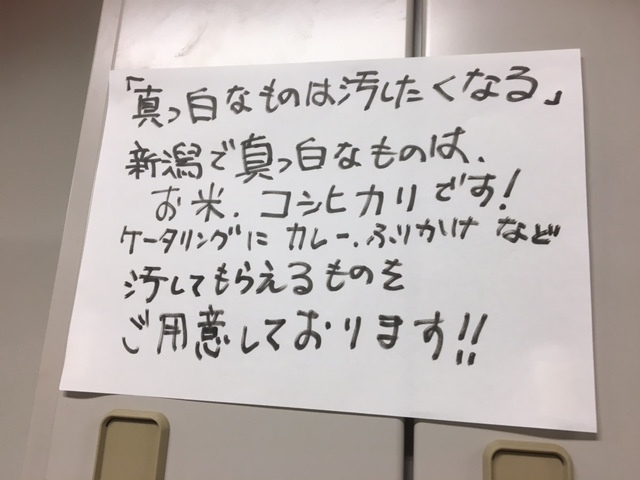 「真っ白なものは汚したくなる」
新潟で真っ白なものは、
お米、コシヒカリです!
ケータリングに カレー、ふりかけ など
汚してもらえるものを
ご用意しております!!